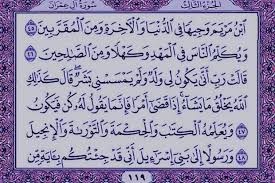 سُورَةُ آلِ عِمْرَانَ الجُزْءُ الثَّالِثُ
ٱبْنُ مَرْيَمَ وَجِيهًا فِي ٱلدُّنْيَا وَٱلْأَخِرَةِ وَمِنَ ٱلْمُقَرَّبِينَ ٤٥
وَيُكَلِّمُ ٱلنَّاسَ فِي ٱلْمَهْدِ وَكَهْلًا وَمِنَ ٱلصَّٰلِحِينَ ٤٦
قَالَتْ رَبِّ أَنَّىٰ يَكُونُ لِي وَلَدٌ وَلَمْ يَمْسَسْنِي بَشَرٌ قَالَ كَذَٰلِكِ
ٱللَّهُ يَخْلُقُ مَا يَشَآءُ إِذَا قَضَىٰٓ أَمْرًا فَإِنَّمَا يَقُولُ لَهُۥ كُن فَيَكُونُ
٤٧ وَيُعَلِّمُهُ ٱلْكِتَٰبَ وَٱلْحِكْمَةَ وَٱلتَّوْرَىٰةَ وَٱلْإِنجِيلَ
٤٨ وَرَسُولًا إِلَىٰ بَنِيٓ إِسْرَٰٓءِيلَ أَنِّي قَدْ جِئْتُكُم بِـَٔايَةٍ مِّن
١١٩